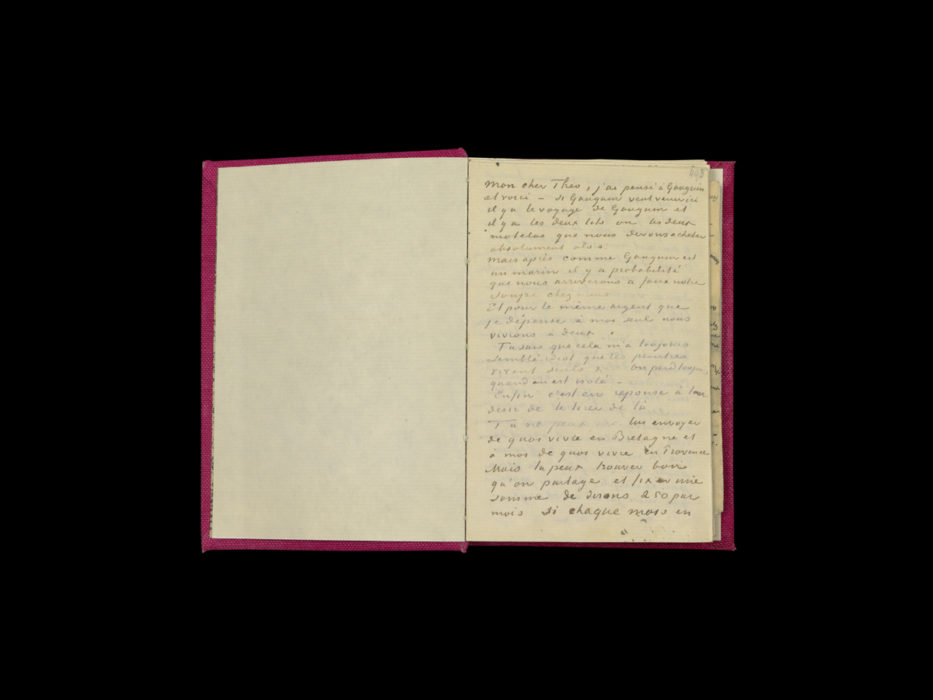 mon cher Theo, j'ai pensé à Gauguin
et voici – si Gauguin veut venir ici
il y a le voyage de Gauguin et
il y a les deux lits ou les deux
matelas que nous devons acheter
absolument alors
mais après comme Gauguin est
un marin il y a probabilité
que nous arriverons à faire notre
soupe chez nous
Et pour le même argent que
je dépense à moi seul nous
vivrons à deux.
Tu sais que cela m'a toujours
semblé idiot que les peintres
vivent seuls &c. on perd toujours
quand on est isolé –
Enfin c'est en reponse à ton
desir de le tirer de là
Tu ne peux pas lui envoyer
de quoi vivre en Bretagne et
à moi de quoi vivre en Provence
Mais tu peux trouver bon
qu'on partage et fixer une
somme de disons 250 par
mois si chaque mois en